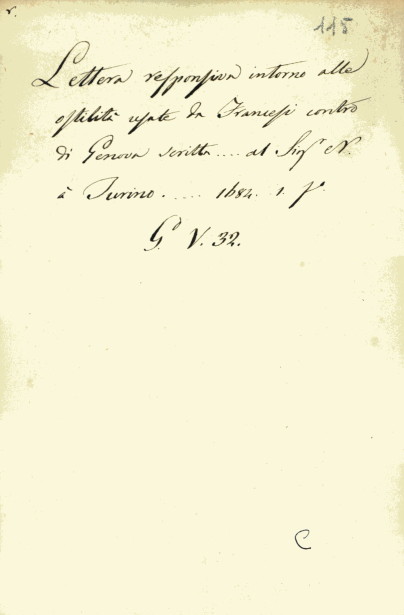 v.
115
Lettera responsiva intorno alle
ostilità usate da Francesi contro
di Genova scritta .... al Sigr N.
à Turino ..... 1684. 1. f°
Gd V. 32.
C